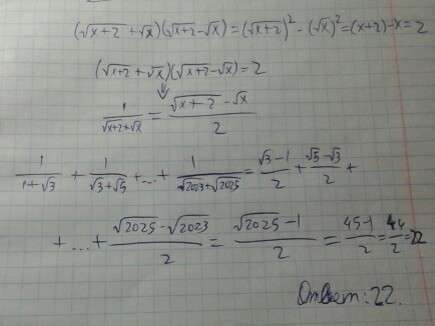 (√x+2 + √x)(√x+2 - √x) = (√x+2)² - (√x)² = (x+2) - x = 2
(√x+2 + √x)(√x+2 - √x) = 2
⇓
1/(√x+2 + √x) = (√x+2 - √x)/2
1/(1+√3) + 1/(√3+√5) + ... + 1/(√2023+√2025) = (√3-1)/2 + (√5-√3)/2 +
+ ... + (√2025 - √2023)/2 = (√2025 - 1)/2 = (45-1)/2 = 44/2 = 22
Ответ: 22.